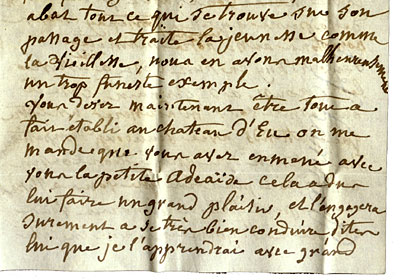 abat tout ce qui se trouve sur son
passage et traite la jeunesse comme
la vieillesse, nous en avons malheureusement
un trop funeste exemple.
vous devez maintenant être tout a
fait établi au chateau d'Eu on me
mande que vous avez enmané avec
vous la petite Adeaïde cela a du
lui faire un grand plaisir, et l'engagera
surement a se très bien conduire dites
lui que je l'apprendrai avec grand